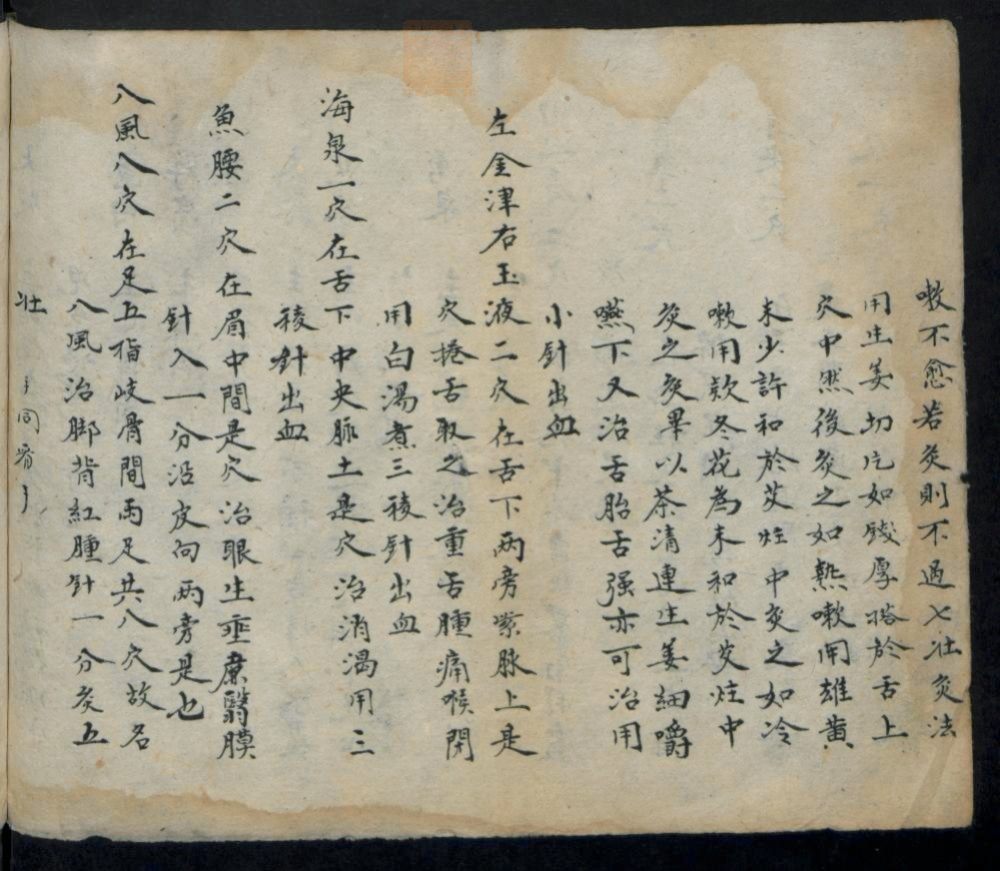 嗽不愈若灸則不過七壯灸法
用生姜切片如錢厚搭於舌上
穴中然後灸之如熱嗽用雄黃
末少許和於艾炷中灸之如冷
嗽用欵冬花為末和於艾炷中
灸之灸畢以茶清連生姜細嚼
嚥下又治舌胎舌强亦可治用
小針出血
左金津右玉液二穴在舌下两旁紫脉上是
穴捲舌取之治重舌腫痛喉閉
用白湯煮三稜針出血
海泉一穴在舌下中央脈土是穴治消渴用三
稜針出血
魚腰二穴在眉中間是穴治眼生垂簾翳膜
針入一分沿皮向两旁是也
八風八穴在足五指岐骨間两足共八穴故名
八風治脚背紅腫針一分灸五
壯